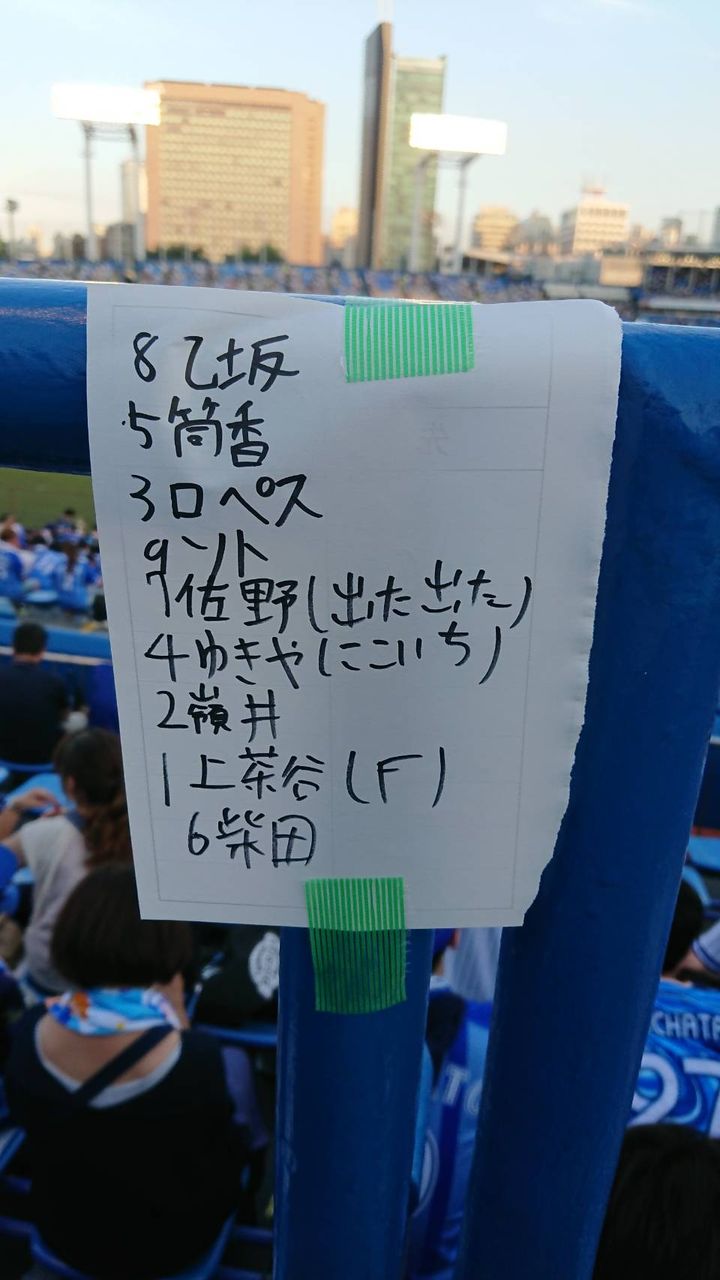 8 乙坂
5 筒香
3 ロペス
9 ソト
7 佐野(出た出た)
4 ゆきや(にこいち)
2 嶺井
1 上茶谷(F)
6 柴田
CHATA
97